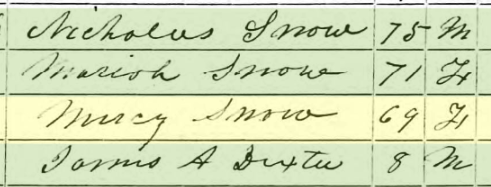 Nicholus Snow 75 M
Mariah Snow 71 F
Mercy Snow 69 F
James A Dexter 8 M